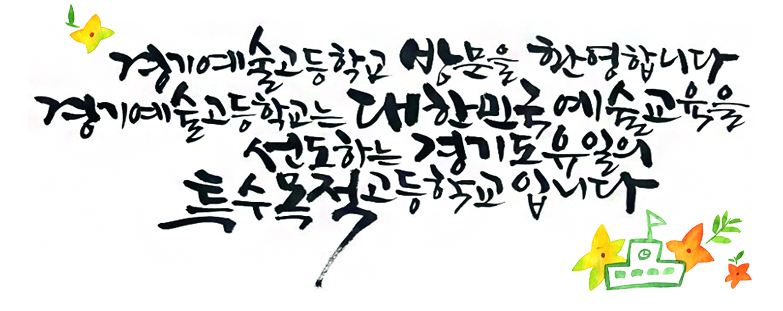 경기예술고등학교 방문을 환영합니다
경기예술고등학교는 대한민국 예술교육을
선도하는 경기도 유일의
특수목적고등학교 입니다